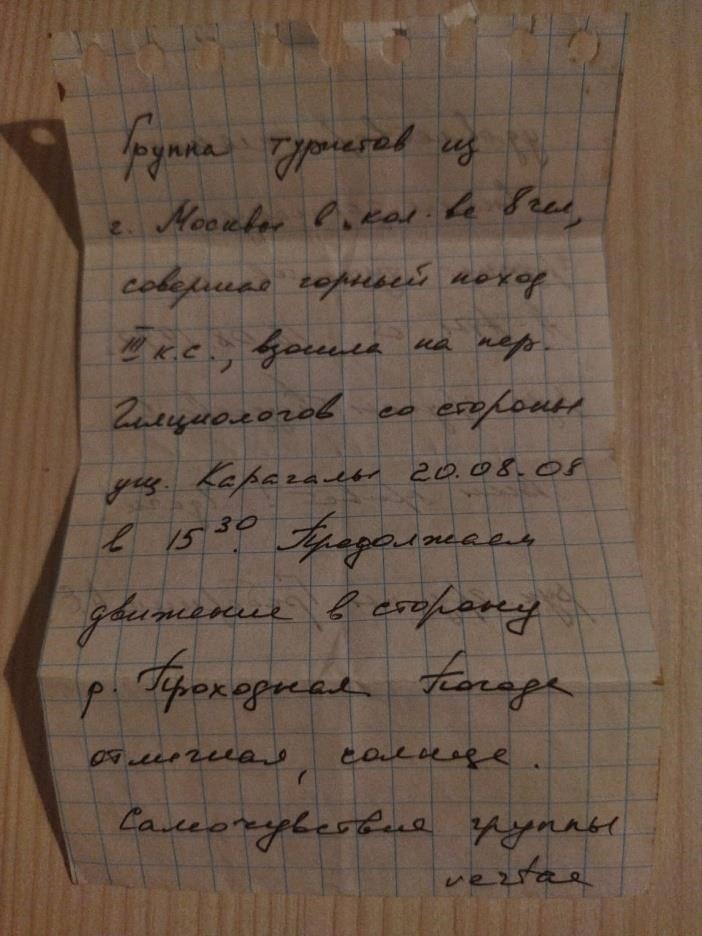 Группа туристов из
г. Москвы в кол. ве 8 чел,
совершая горный поход
III к.с., взошла на пер.
Гляциологов со стороны
ущ. Карагалы 20.08.08
в 15 30. Продолжаем
движение в сторону
р. Проходная Погода
отличная, солнце.
Самочувствие группы